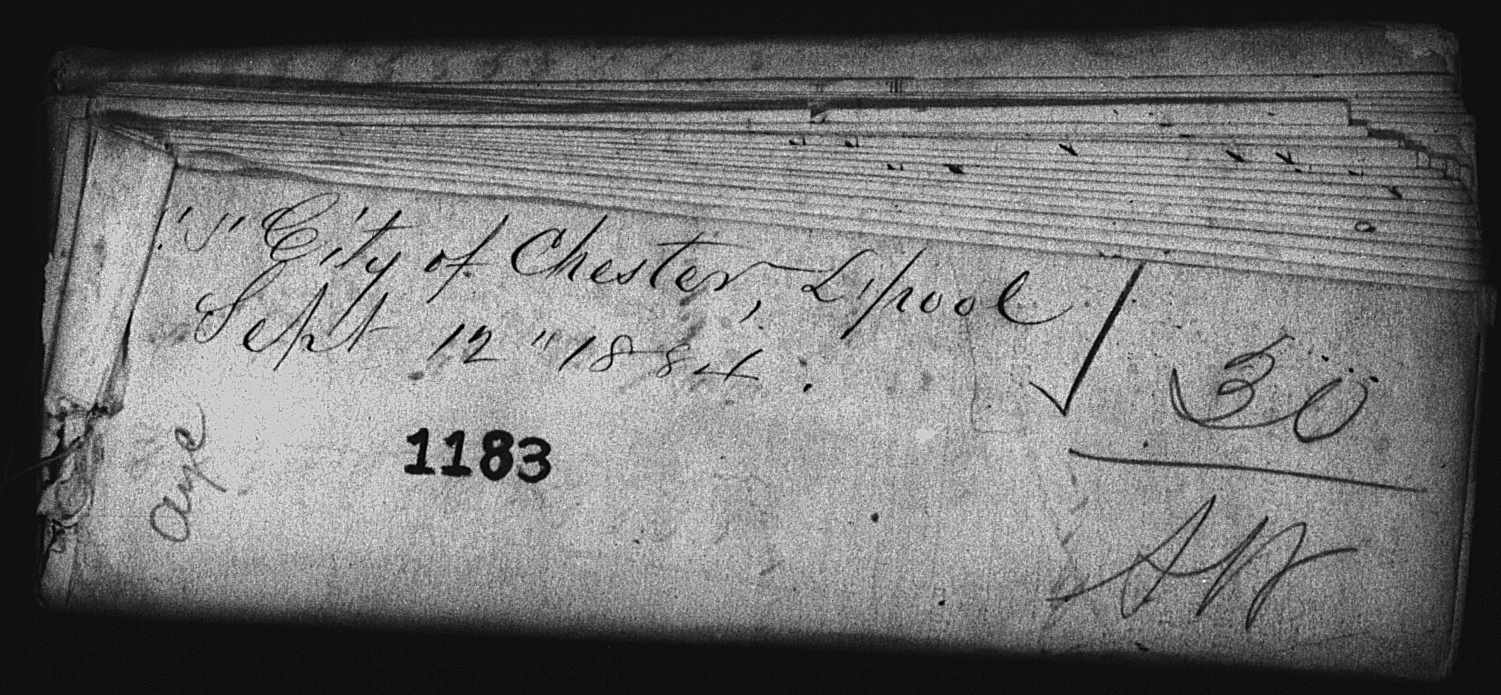 "S" City of Chester, L'pool
Sept 12" 1884.
1183
30